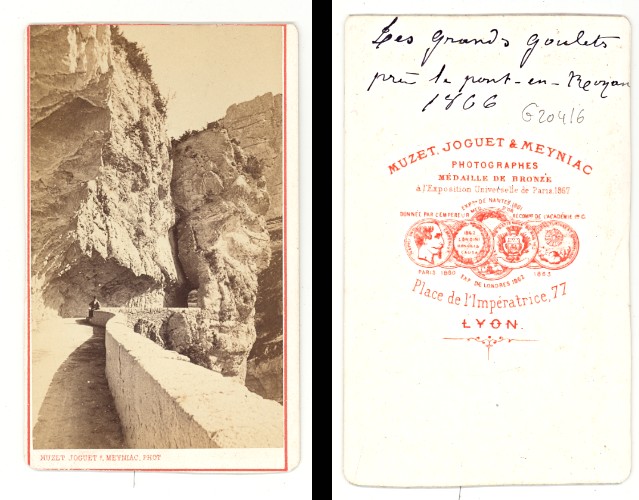 MUZET JOGUET & MEYNIAC, PHOT
Les grands goulets
près le pont-en-Royan
1866
G20416
MUZET, JOGUET & MEYNIAC
PHOTOGRAPHES
MÉDAILLE DE BRONZE
à l'Exposition Universelle de Paris 1867
EXPon DE NANTES 1861
DONNÉE PAR L'EMPEREUR
RECOMPse DE L'ACADÉMIE
1862
LONDINI
HONORIS
CAUSA
PARIS 1860
EXP. DE LONDRES 1862
1863
Place de l'Impératrice, 77
LYON.